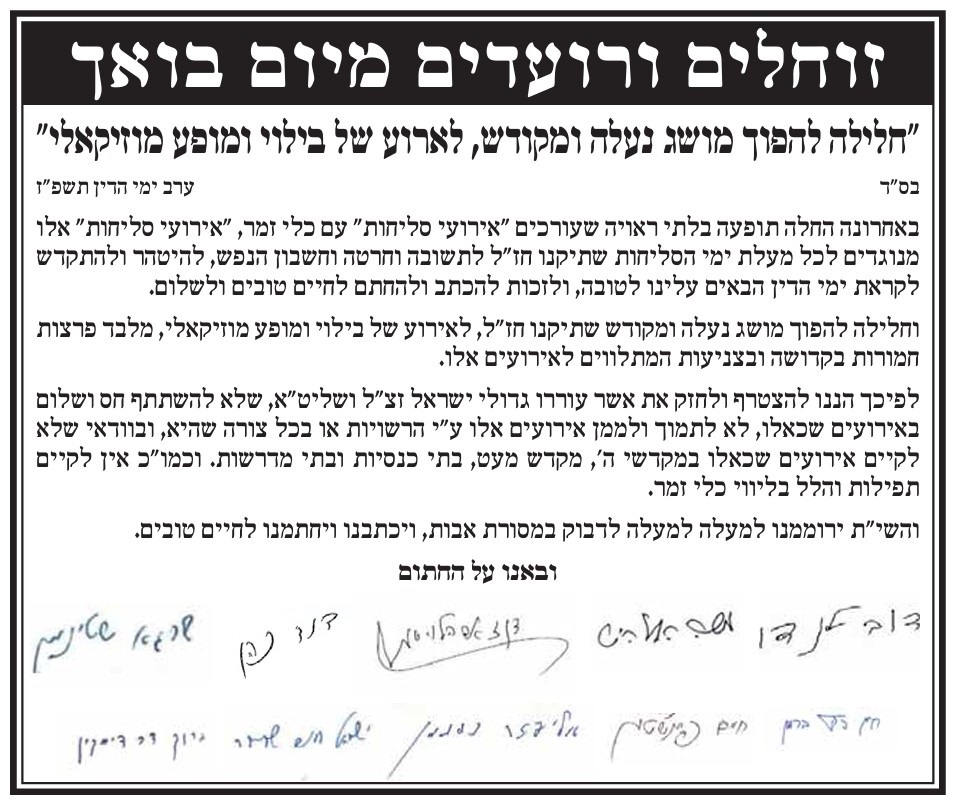 זוחלים ורועדים מיום בואך
"חלילה להפוך מושג נעלה ומקודש, לארוע של בילוי ומופע מוזיקאלי"
בס"ד ערב ימי הדין תשפ"ז
באחרונה החלה תופעה בלתי ראויה שעורכים "אירועי סליחות" עם כלי זמר, "אירועי סליחות" אלו
מנוגדים לכל מעלת ימי הסליחות שתיקנו חז"ל לתשובה וחרטה וחשבון הנפש, להיטהר ולהתקדש
לקראת ימי הדין הבאים עלינו לטובה, ולזכות להכתב ולהחתם לחיים טובים ולשלום.
וחלילה להפוך מושג נעלה ומקודש שתיקנו חז"ל, לאירוע של בילוי ומופע מוזיקאלי, מלבד פרצות
חמורות בקדושה ובצניעות המתלווים לאירועים אלו.
לפיכך הננו להצטרף ולחזק את אשר עוררו גדולי ישראל זצ"ל ושליט"א, שלא להשתתף חס ושלום
באירועים שכאלו, לא לתמוך ולממן אירועים אלו ע"י הרשויות או בכל צורה שהיא, ובוודאי שלא
לקיים אירועים שכאלו במקדשי ה', מקדש מעט, בתי כנסיות ובתי מדרשות. וכמו"כ אין לקיים
תפילות והלל בליווי כלי זמר.
והשי"ת ירוממנו למעלה למעלה לדבוק במסורת אבות, ויכתבנו ויחתמנו לחיים טובים.
ובאנו על החתום
דוב לנדו דוד כהן שרגא שטינמן
חיים אליעזר ישראל